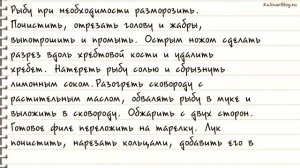 KulinarBlog.ru
Рыбу при необходимости разморозить.
Почистить, отрезать голову и жабры,
выпотрошить и промыть. Острым ножом сделать
разрез вдоль хребтовой кости и удалить
хребет. Натереть рыбу солью и сбрызнуть
лимонным соком. Разогреть сковороду с
растительным маслом, обвалять рыбу в муке и
выложить в сковороду. Обжарить с двух сторон.
Готовое филе переложить на тарелку. Лук
почистить, нарезать кольцами, добавить его в